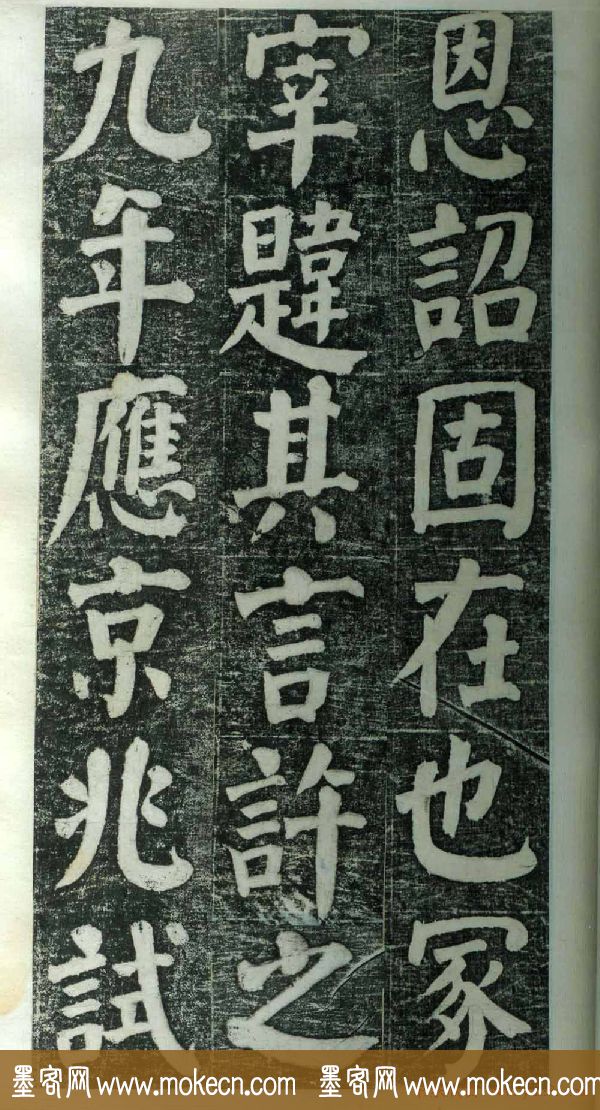 恩詔固在也冢
宰韙其言許之
九年應京兆試
墨客网 www.mokecn.com 墨客网 www.mokecn.com